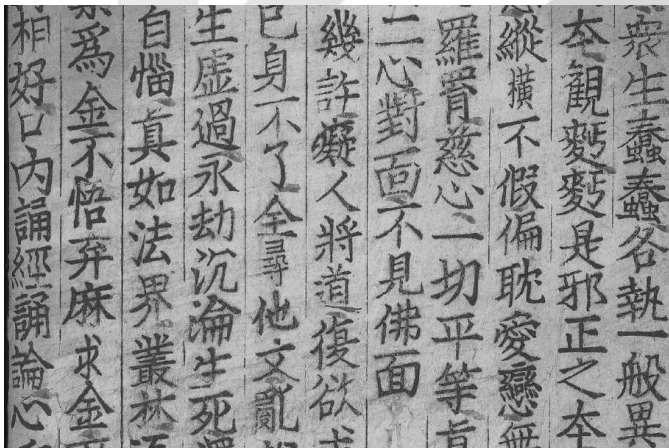 衆生蠢蠢各執一般異
夲觀麫麫是邪正之夲
縱橫不假偏耽愛戀無
羅罥慈心一切平等眞
二心對面不見佛面
幾許癡人將道復欲求
己身不了全尋他文亂
生虛過永劫沉淪生死
自惱眞如法界叢林
爲金不悟弃麻求金
相好口內誦經誦論心